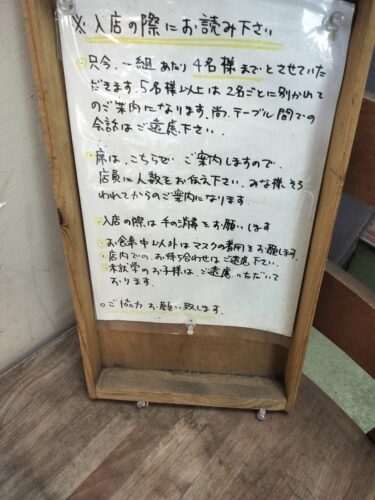 ※入店の際にお読み下さい
・只今、一組あたり4名様までとさせていた
だきます。5名様以上は2名ごとに別かれて
のご案内になります。尚、テーブル間での
会話はご遠慮下さい。
・席は、こちらで、ご案内しますので、
店員に人数をお伝え下さい。みな様、そろ
われてからのご案内になります。
・入店の際は手の消毒をお願いします
・お食事中以外はマスクの着用をお願します。
・店内での、お待ち合わせはご遠慮下さい。
・未就学のお子様は、ご遠慮いただいて
おります。
○ご協力お願い致します。